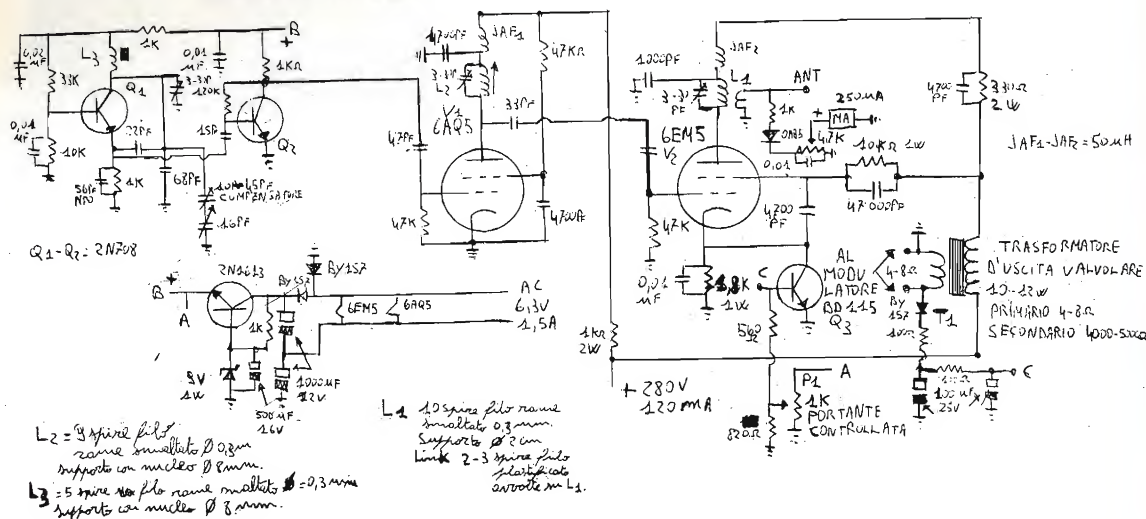 0,02 µF
33K
L3
1K
B
+
0,01 µF
3-30 PF
120K
1KΩ
Q1
Q2
0,01 µF
10K
22PF
15P
56PF NPO
1K
68PF
10-45PF
COMPENSATORE
16PF
Q1-Q2=2N708
4700PF
JAF1
47KΩ
3-30
L2
V1
6AQ5
33PF
47PF
47K
4700PF
1000PF
JAF2
L1
ANT
3-30 PF
1K
OA85
250µA
+
MA
4,7K
0,01
6EM5
V2
47K
4700 PF
10KΩ 1W
47000PF
4700 PF
330Ω
2W
JAF1-JAF2=50µH
0,01 µF
1,8K
1W
C
560 Ω
AL MODULATORE
BD115
Q3
4-8Ω
BY 157
100Ω
T1
TRASFORMATORE
D'USCITA VALVOLARE
10-12W
PRIMARIO 4-8Ω
SECONDARIO 4000-5000Ω
C
100Ω
100µF
25V
1KΩ
2W
+280V
120mA
820Ω
P1
1K
A
PORTANTE
CONTROLLATA
B
A
2N1613
BY157
BY157
1K
6EM5
6AQ5
AC
6,3V
1,5A
9V
1W
500µF
16V
1000µF
12V
L2=9 spire filo
rame smaltato Ø 0,3mm
supporto con nucleo Ø 8mm.
L3=5 spire filo rame smaltato Ø=0,3mm
supporto con nucleo Ø 8mm.
L1 10 spire filo rame
smaltato 0,3mm.
Supporto Ø 2cm
Link 2-3 spire filo
plastificato
avvolte su L1.